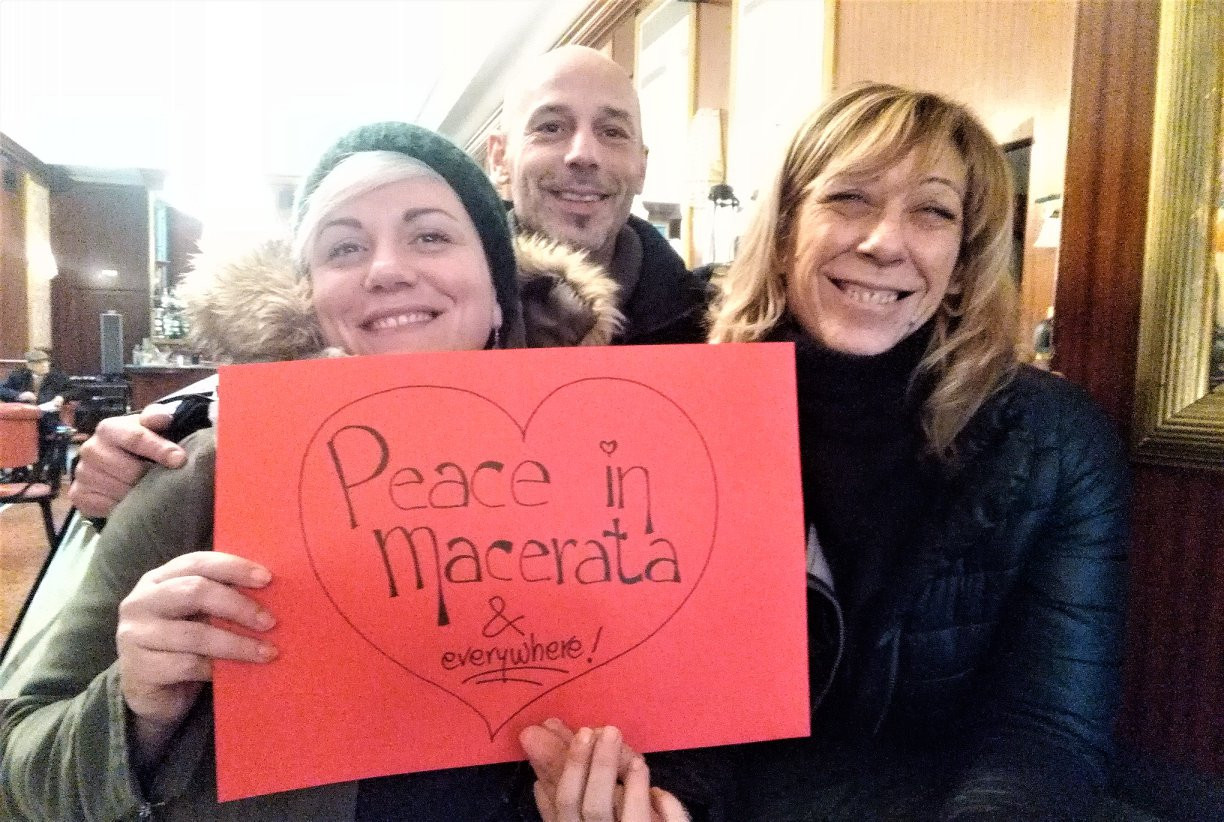 Peace in
Macerata
&
everywhere!